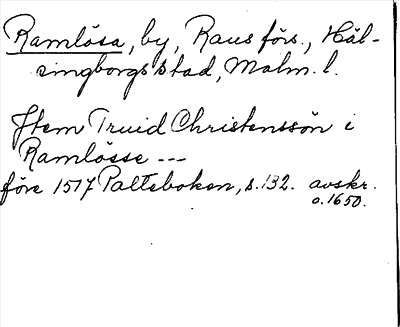 Ramlösa, by, Raus förs., Häl-
singborgs stad, Malm. l.
Jtem Truid Christenssön i
Ramlösse ---
före 1517 Palteboken, s. 132. avskr.
o. 1650.